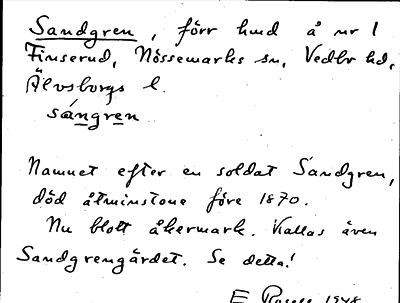 Sandgren, förr hmd å nr 1
Finserud, Nössemarks sn, Vedbo hd,
Älvsborgs l.
sángren
Namnet efter en soldat Sandgren,
död åtminstone före 1870.
Nu blott åkermark. Kallas även
Sandgrengärdet. Se detta!
E 1948